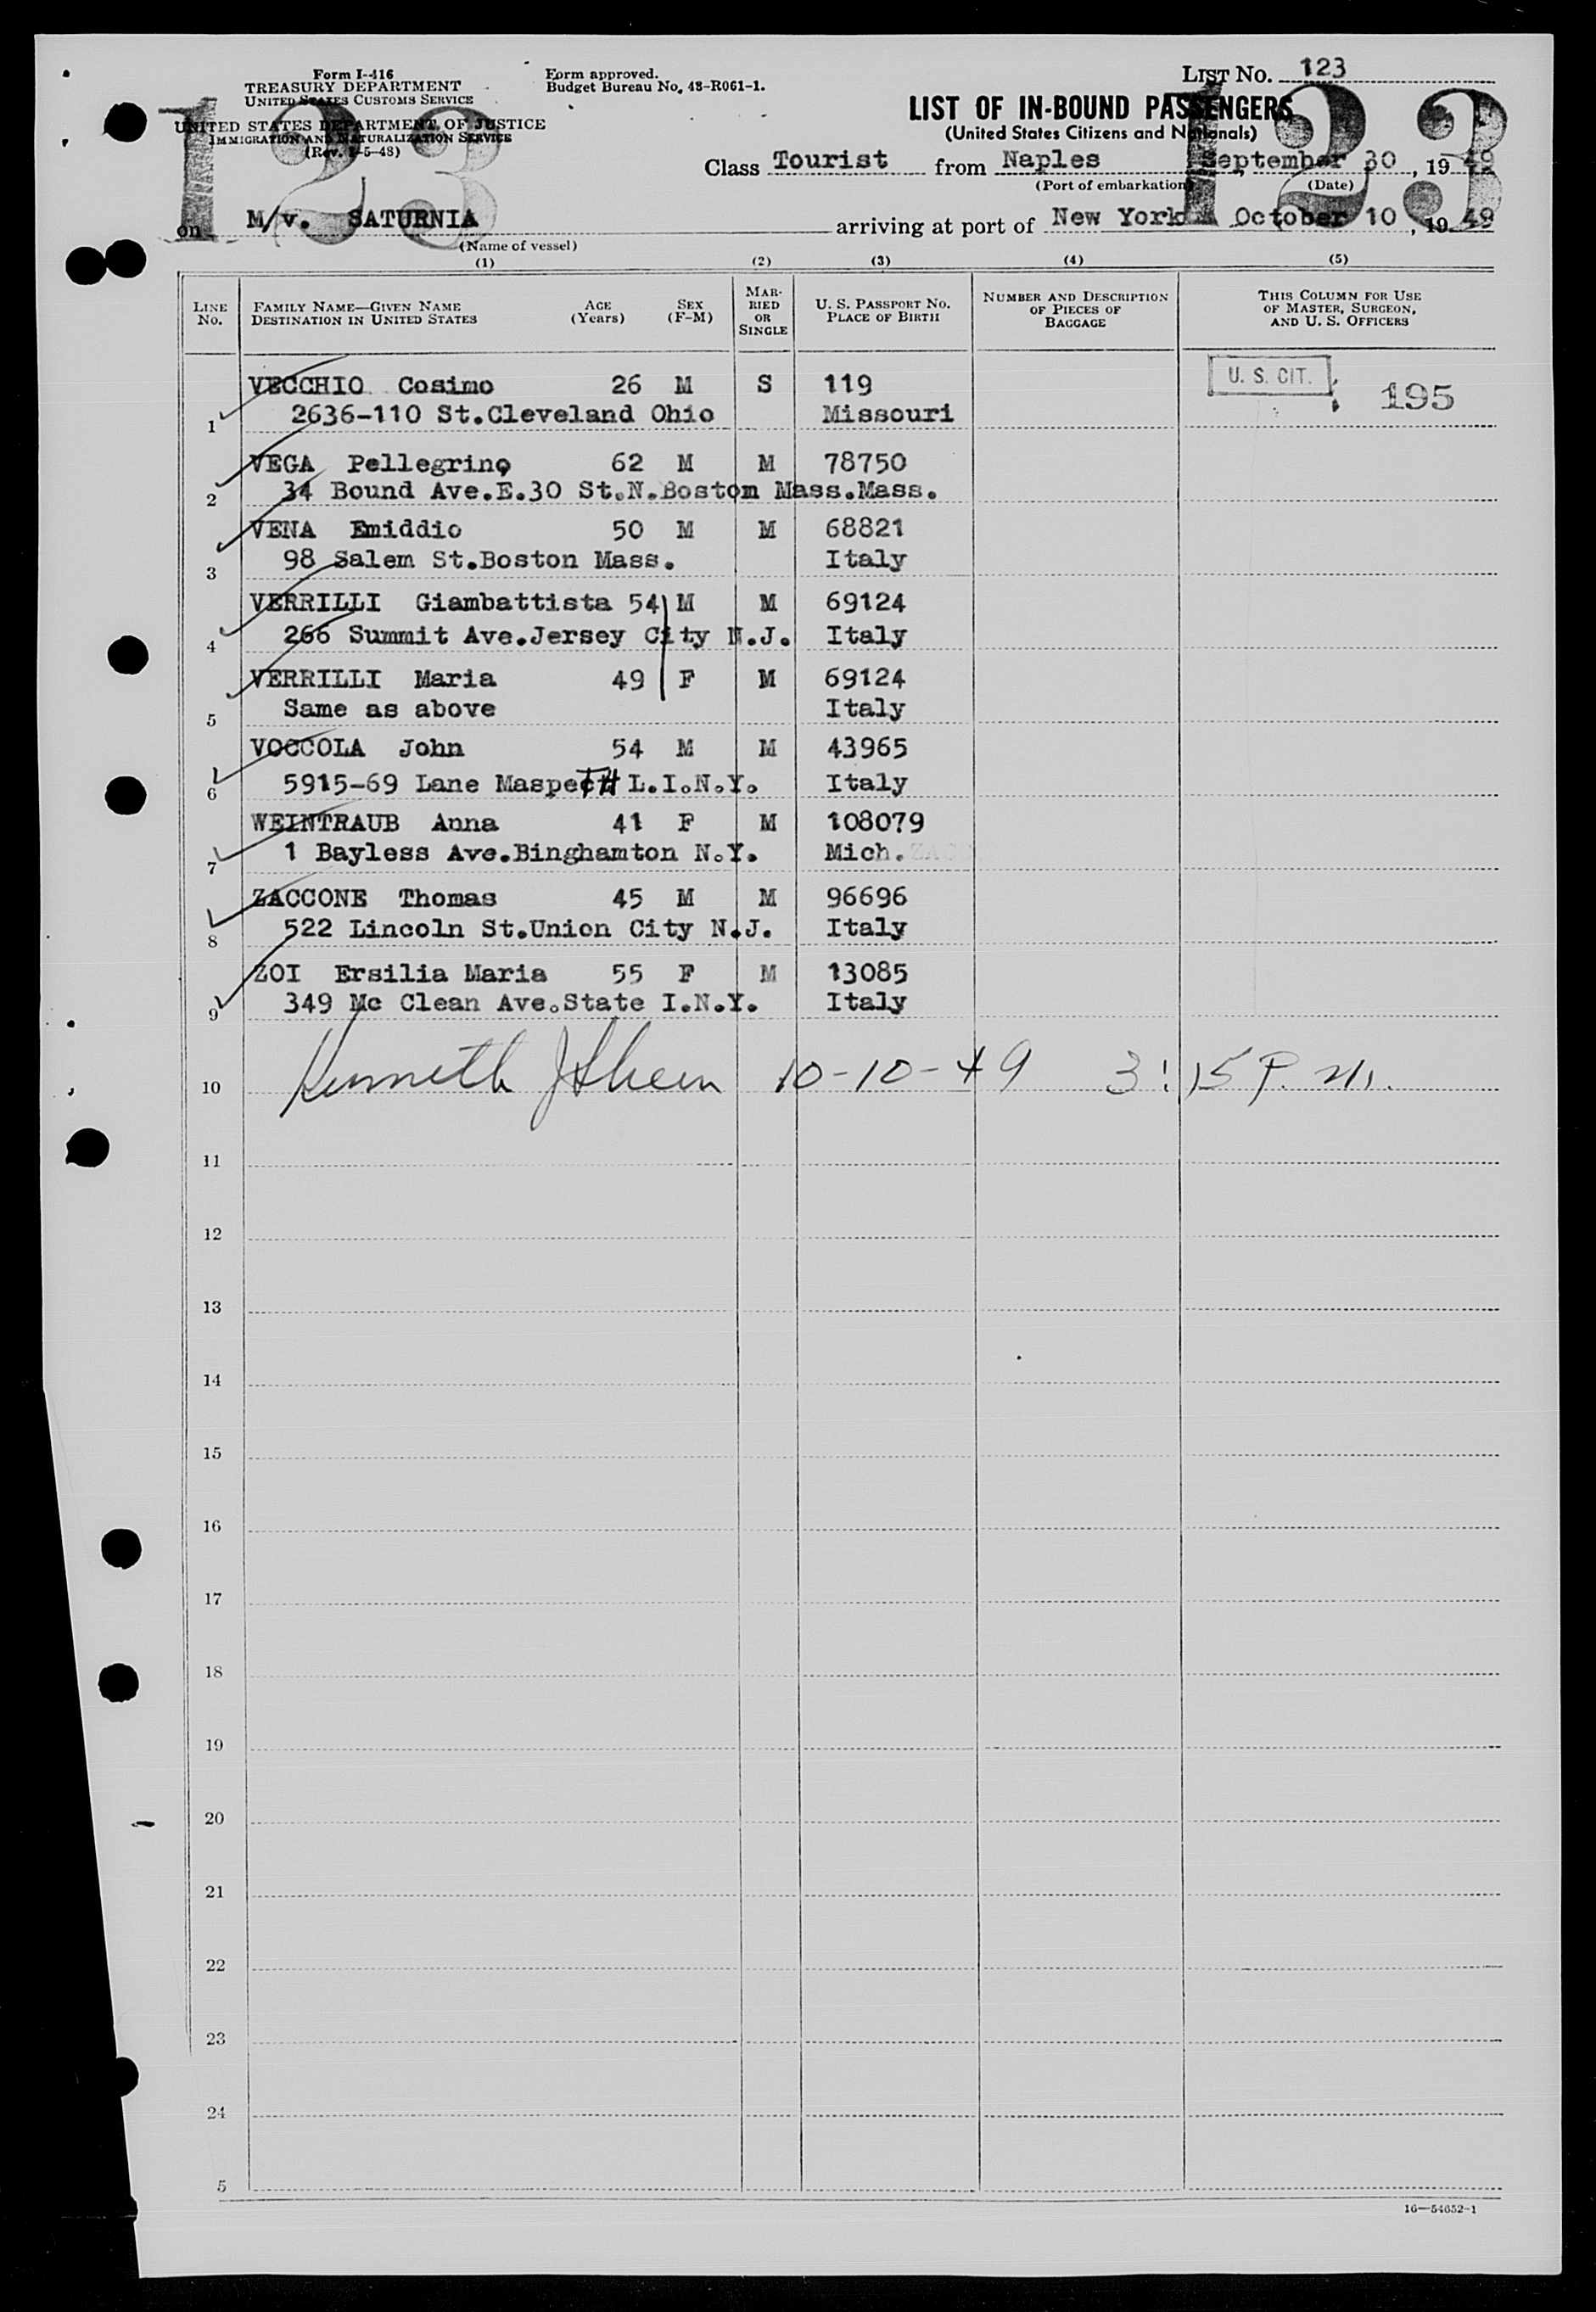 Form I-416
TREASURY DEPARTMENT
UNITED STATES CUSTOMS SERVICE
UNITED STATES DEPARTMENT OF JUSTICE
IMMIGRATION AND NATURALIZATION SERVICE
(Rev. 4-5-48)
Form approved.
Budget Bureau No. 43-R061-1.
LIST No. 123
123
123
LIST OF IN-BOUND PASSENGERS
(United States Citizens and Nationals)
Class Tourist from Naples September 30, 1949
(Port of embarkation) (Date)
on M/v. SATURNIA arriving at port of New York October 10, 1949
(Name of vessel)
(1) (2) (3) (4) (5)
LINE No. FAMILY NAME—GIVEN NAME DESTINATION IN UNITED STATES AGE (Years) SEX (F-M) MARRIED OR SINGLE U. S. PASSPORT No. PLACE OF BIRTH NUMBER AND DESCRIPTION OF PIECES OF BAGGAGE THIS COLUMN FOR USE OF MASTER, SURGEON, AND U. S. OFFICERS
VECCHIO Cosimo 26 M S 119 U. S. CIT. 195
1 2636-110 St.Cleveland Ohio Missouri
VEGA Pellegrino 62 M M 78750
2 34 Bound Ave.E.30 St.N.Boston Mass.Mass.
VENA Emiddio 50 M M 68821
3 98 Salem St.Boston Mass. Italy
VERRILLI Giambattista 54 M M 69124
4 266 Summit Ave.Jersey City N.J. Italy
VERRILLI Maria 49 F M 69124
5 Same as above Italy
VOCCOLA John 54 M M 43965
6 5915-69 Lane MaspeTH L.I.N.Y. Italy
WEINTRAUB Anna 41 F M 108079
7 1 Bayless Ave.Binghamton N.Y. Mich.
ZACCONE Thomas 45 M M 96696
8 522 Lincoln St.Union City N.J. Italy
ZOI Ersilia Maria 55 F M 13085
9 349 Mc Clean Ave.State I.N.Y. Italy
10 Kenneth J Sheen 10-10-49 3:15 P. M.
11
12
13
14
15
16
17
18
19
20
21
22
23
24
5
16—54652-1